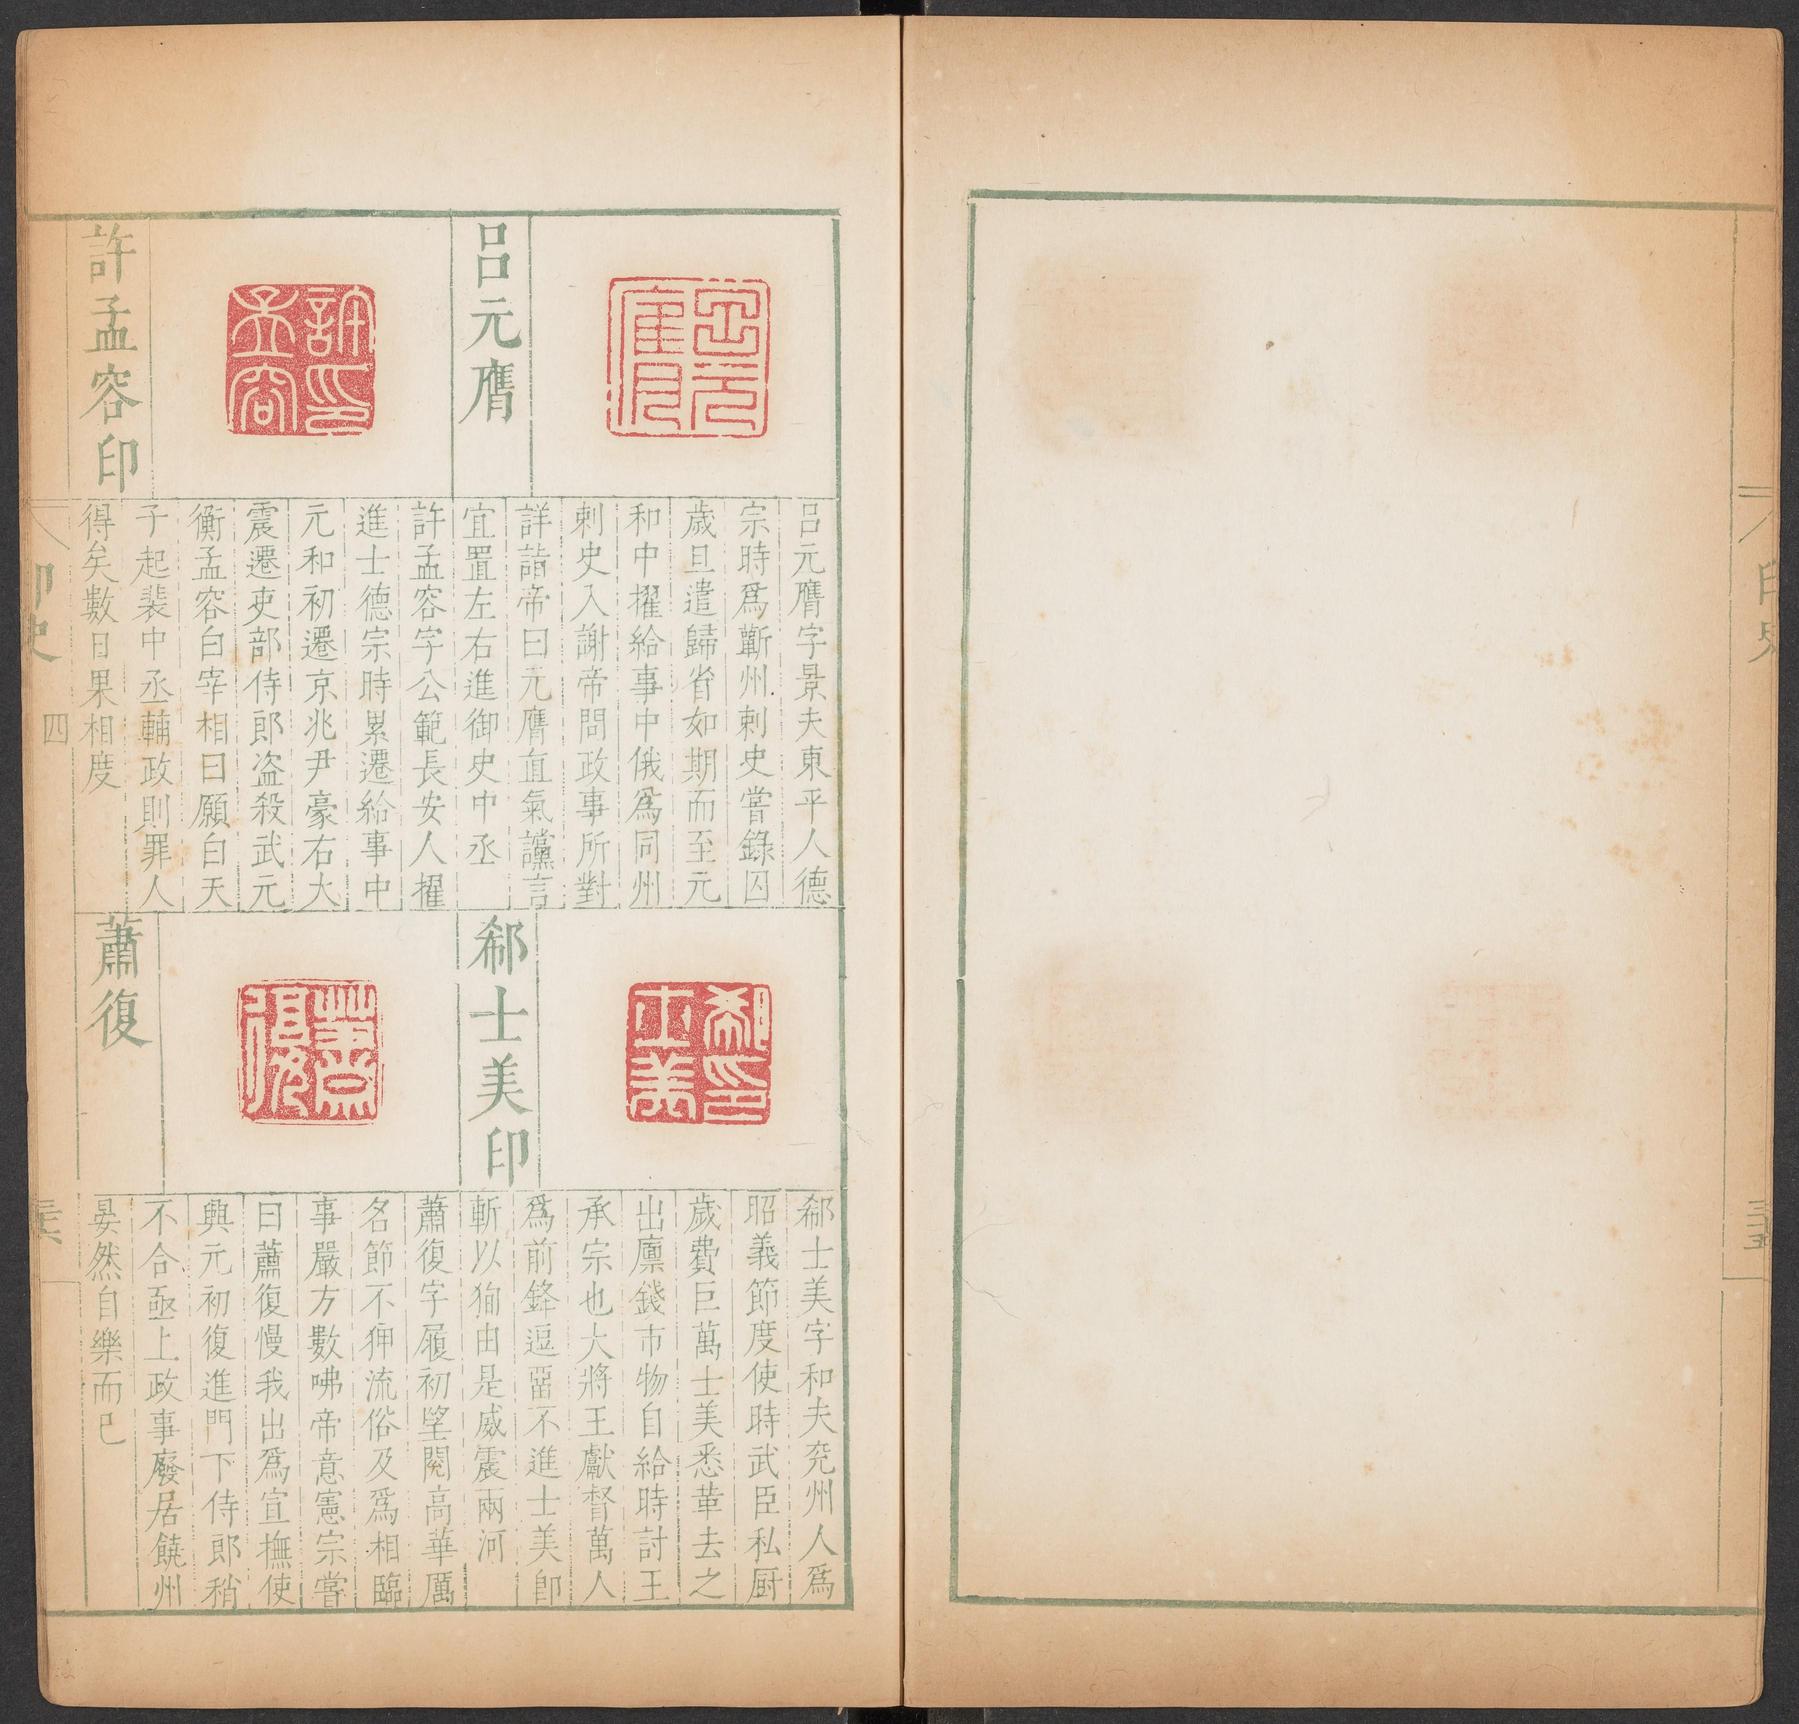 印史
三十五
呂元膺
呂元膺字景夫東平人德
宗時爲蘄州刺史嘗錄囚
歲旦遣歸省如期而至元
和中擢給事中俄爲同州
刺史入謝帝問政事所對
詳諧帝曰元膺直氣讜言
宜置左右進御史中丞
許孟容印
許孟容字公範長安人擢
進士德宗時累遷給事中
元和初遷京兆尹豪右大
震遷吏部侍郎盗殺武元
衡孟容白宰相曰願白天
子起裴中丞輔政則罪人
得矣數日果相度
郗士美印
郗士美字和夫兖州人爲
昭義節度使時武臣私厨
歲費巨萬士美悉革去之
出廪錢市物自給時討王
承宗也大將王獻督萬人
爲前鋒逗畱不進士美卽
斬以狥由是威震兩河
蕭復
蕭復字履初望閥高華厲
名節不狎流俗及爲相臨
事嚴方數咈帝意憲宗嘗
曰蕭復慢我出爲宣撫使
興元初復進門下侍郎稍
不合亟上政事廢居饒州
晏然自樂而已
印史
四
三十六